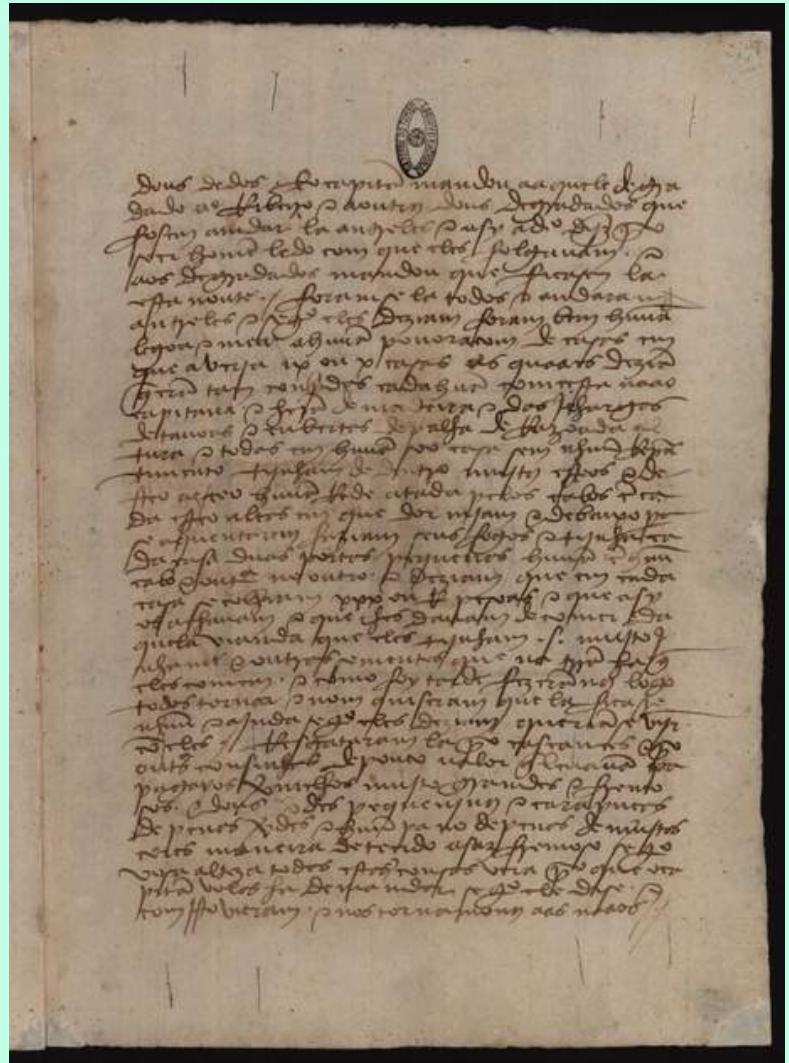 dous dedos. E o capitam mandou aaquele degra
dado aº Ribeiro e a outros dous degradados que
fosem amdar la antreles e asy a dº dijz por
seer homem ledo com que eles folgauam. e
aos degradados mandou que ficasem la
esta noute. / foramse la todos e andaram
antreles e segº eles deziam foram bem huũa
legoa e mea a huũa pouoraçom de casas em
que averja ix ou x casas as quaaes deziam
que eram tam conpridas cada huũa come esta naao
capitana e heram de madeira e das jlhargas
de tauoas e cubertas de palha de Razoada al
tura e todas em huũa soo casa sem nhuũ Repar
timento tijnham de dentro mujtos esteos e de
steo a esteo huũa Rede atada pelos cabos em ca
da esteo altas em que dormjam e debaixo pera
se aquentarem faziam seus fogos e tijnha ca
da casa duas portas pequenas huũa em huũ
cabo e outra no outro. e deziam que em cada
casa se colhiam xxx ou R pesoas e que asy
os achauam e que lhes dauam de comer da
quela vianda que eles tijnham .s. mujto j
nhame e outras sementes que na terra ha que
eles comem. e como foy tarde fezeramnos logo
todos tornar e nom quiseram que la ficase
nhuũ e ajnda segº eles deziam queriamse vijr
com eles. / Resgataram la por cascauees e por
outras cousinhas de pouco valor que leuauam pa
pagayos vermelhos mujto grandes e fremo
sos. e dous verdes pequenjnos e carapuças
de penas verdes e huũ pano de penas de mujtas
cores maneira de tecido asaz fremoso segº
vosa alteza todas estas cousas vera por que o ca
pitam volas ha de mandar segº ele dise. e
com jsto vieram. e nos tornamonos aas naaos